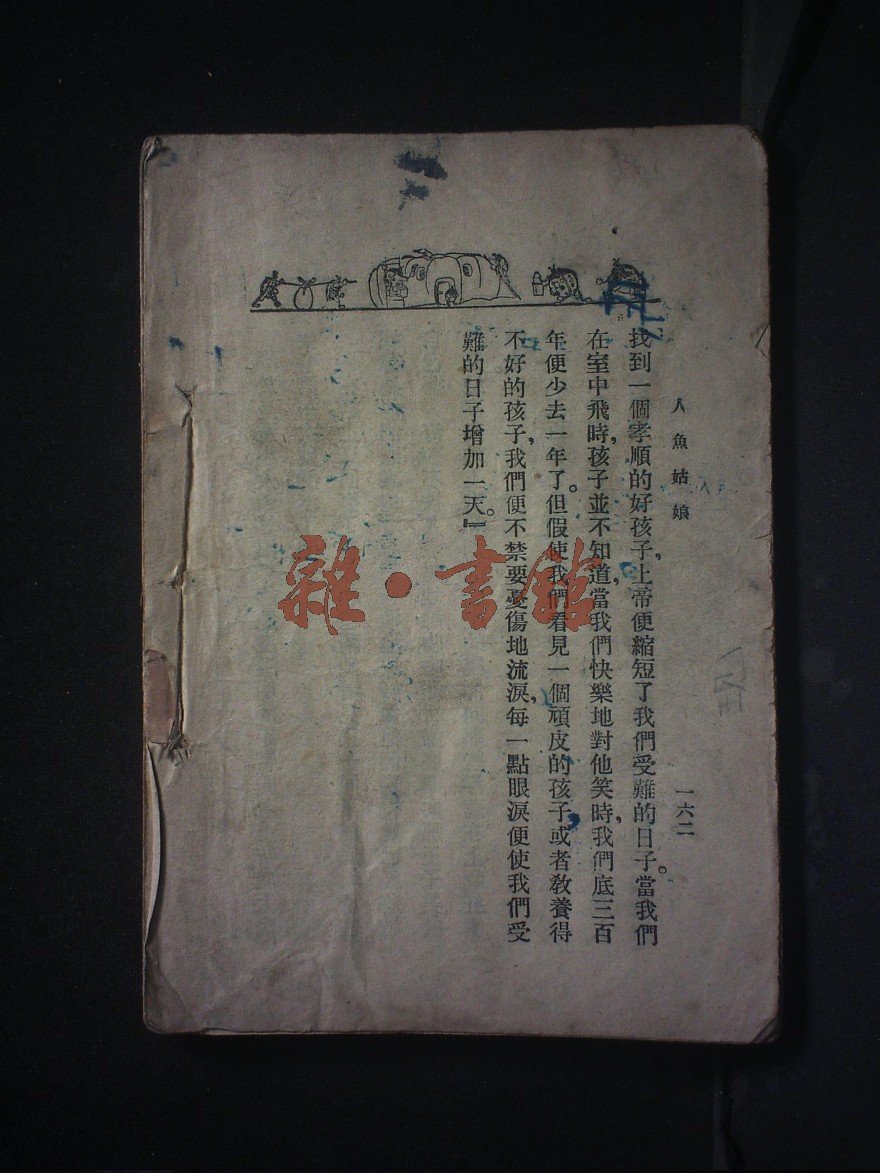 人魚姑娘
一六二
找到一個孝順的好孩子,上帝便縮短了我們受難的日子。當我們
在室中飛時,孩子並不知道,當我們快樂地對他笑時,我們底三百
年便少去一年了。但假使我們看見一個頑皮的孩子,或者教養得
不好的孩子,我們便不禁要憂傷地流淚,每一點眼淚便使我們受
難的日子增加一天。』
雜·書館